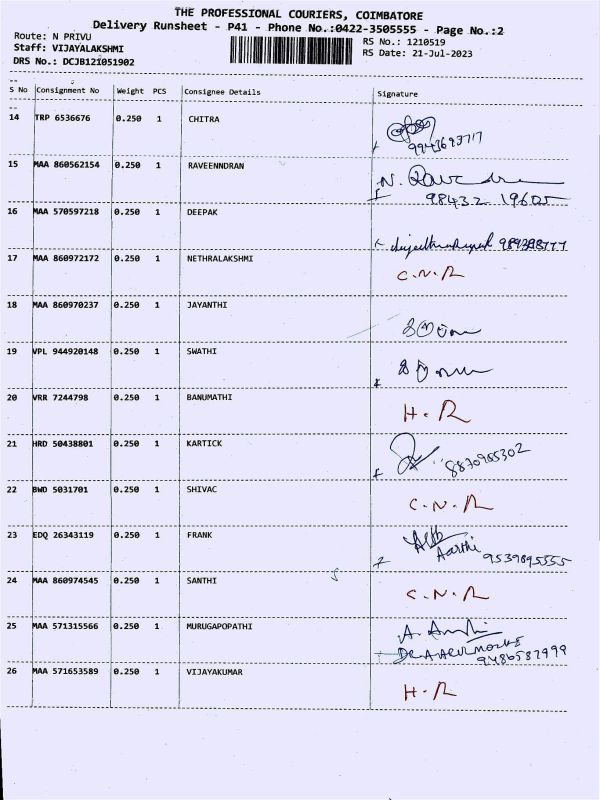 THE PROFESSIONAL COURIERS, COIMBATORE
Delivery Runsheet - P41 - Phone No.:0422-3505555 - Page No.:2
Route: N PRIVU
RS No.: 1210519
Staff: VIJAYALAKSHMI
RS Date: 21-Jul-2023
DRS No.: DCJB121051902
S No Consignment No Weight PCS Consignee Details Signature
14 TRP 6536676 0.250 1 CHITRA
15 MAA 860562154 0.250 1 RAVEENNDRAN
98432 19605
16 MAA 570597218 0.250 1 DEEPAK
17 MAA 860972172 0.250 1 NETHRALAKSHMI C.N.R
18 MAA 860970237 0.250 1 JAYANTHI
19 VPL 944920148 0.250 1 SWATHI
20 VRR 7244798 0.250 1 BANUMATHI H.R
21 HRD 50438801 0.250 1 KARTICK
8870955302
22 BWD 5031701 0.250 1 SHIVAC C.N.R
23 EDQ 26343119 0.250 1 FRANK
Aarthi 9539895555
24 MAA 860974545 0.250 1 SANTHI C.N.R
25 MAA 571315566 0.250 1 MURUGAPOPATHI
9486587999
26 MAA 571653589 0.250 1 VIJAYAKUMAR H.R